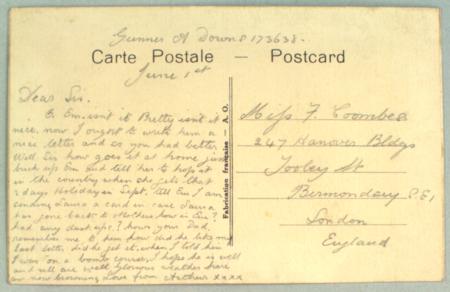 Gunner A Downs 173638.
Carte Postale – Postcard
June 1st
Dear Sir.
& Em. isn't it Pretty isn't it
nice, now I ought to write him a
nice letter and so you had better
Well Sir how goes it at home just
buck up Em and tell has to hop it
in the country when she gets that
days Holiday in Sept. Em I am
sending a card in case
has gone back to is Sir?
had any dust ups? hows your Dad,
remember me to him how did he like my
last letter did he get it, when I told him
I was on a bomb course, I hope he is well
and all are well Glorious weather here
am now browning Love from Arthur xxxx
Fabrication française — A. O.
Miss F. Coombes
247 Hanover Bldgs
Tooley St
Bermondsey S.E.1
London
England